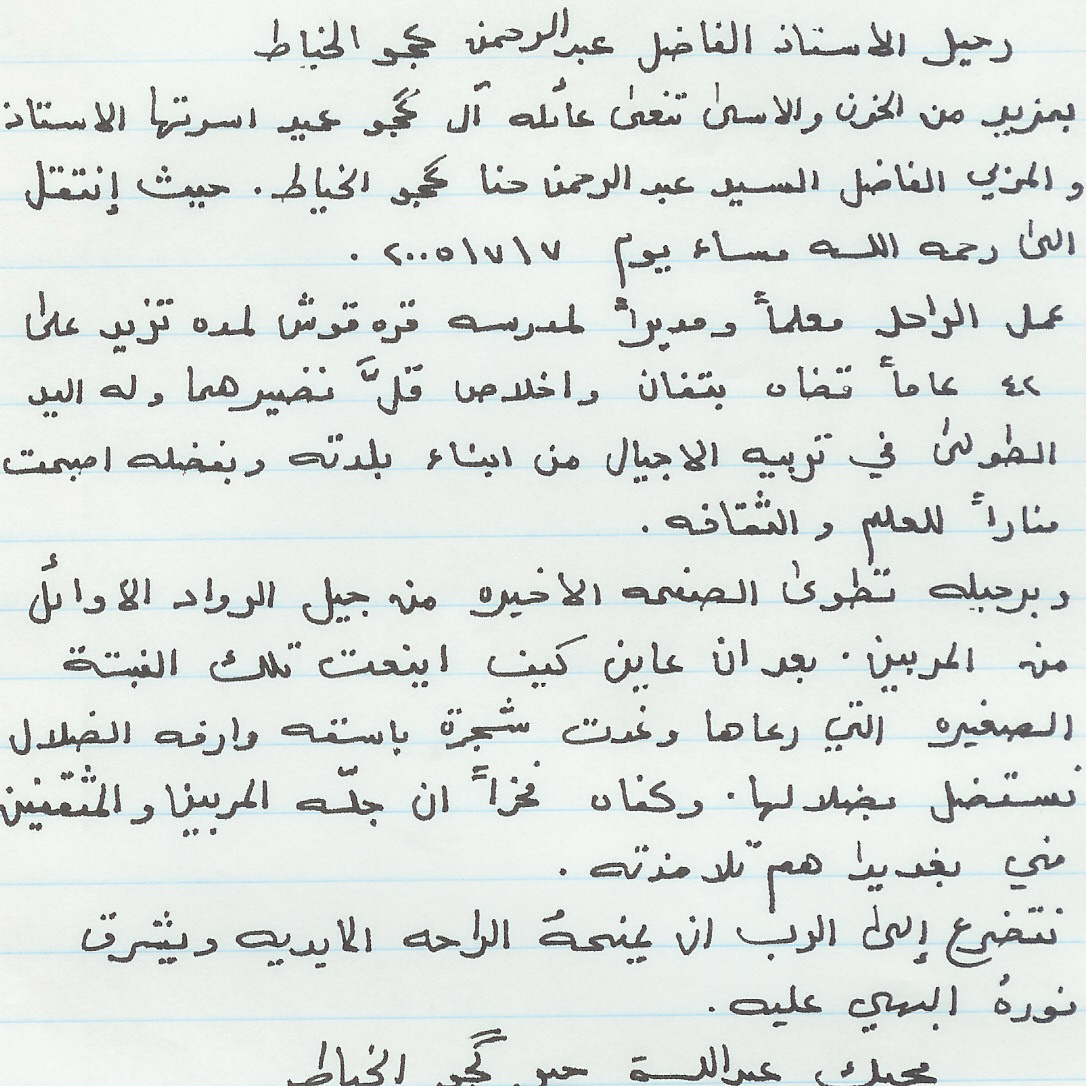 رحيل الاستاذ الفاضل عبدالرحمن ككجو الخياط
بمزيد من الحزن والاسى تنعى عائله آل گچو عميد اسرتها الاستاذ
والمربي الفاضل السيد عبد الرحمن حنا ككجو الخياط. حيث إنتقل
الى رحمه الله مساء يوم ٢٠٠٥/٧/٧ .
عمل الراحل معلماً ومديراً لمدرسه قره قوش لمده تزيد على
٤٢ عاماً قضاه بتفان واخلاص قلَّ نضيرهما وله اليد
الطولى في تربيه الاجيال من ابناء بلدته وبفضله اصبحت
مناراً للعلم والثقافه .
وبرحيله تطوى الصفحه الاخيره من جيل الرواد الاوائل
من المربين . بعد ان عاين كيف اينعت تلك النبتة
الصغيره التي رعاها وغدت شجرة باسقه وارفه الضلال
نستضل بضلالها . وكفاه فخراً ان جلّه المربين والمثقفين
في بغديدا هم تلامذته .
نتضرع إلى الرب ان يمنحهُ الراحه الابديه ويشرق
نورهُ البهي عليه .
محبك عبدالله حبو گجو الخياط